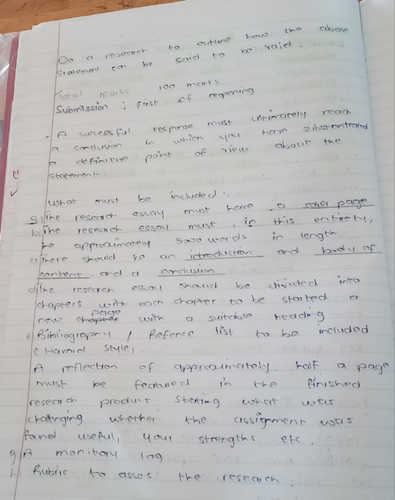 Do a research to outline how the above
statement can be said to be valid.
Total marks 100 marks
Submission : first of reopening
. A successful response must ultimately reach
a conclusion in which you have substantiated
a definitive point of view about the
statement.
What must be included :
a) The research essay must have a cover page
b) The research essay must, in this entirety,
be approximately 5000 words in length.
c) There should to an introduction and body of
content and a conclusion
d) The research essay should be divided into
chapters with each chapter to be started a
new page with a suitable heading
e) Bibliography / Refence list to be included
(Harvard Style)
A reflection of approximately half a page
must be featured in the finished
research product stating what was
challenging whether the assignment was
found useful, your strengths etc.
g) A monitory log
Rubric to asses the research.